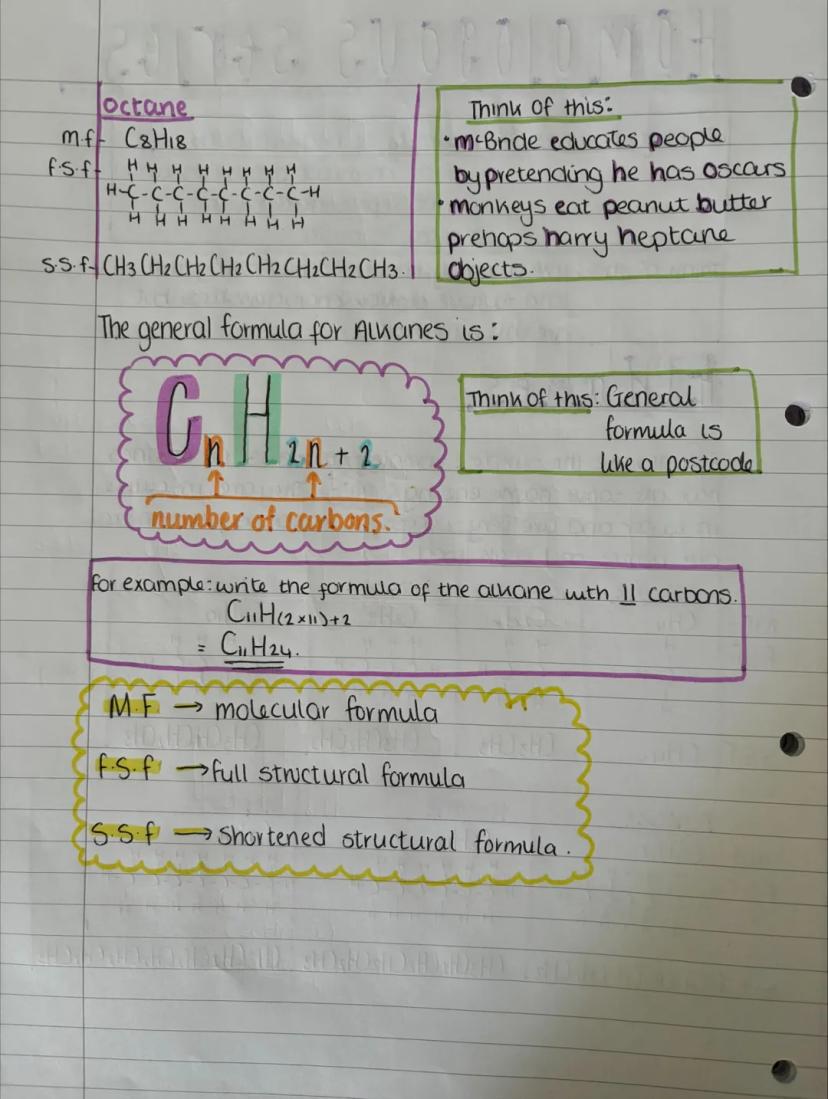 octane
m.f- C8H18
f.s.f-
H H H H H H H H
H-C-C-C-C-C-C-C-C-H
H H H H H H H H
s.s.f- CH3CH2CH2CH2CH2CH2CH2CH3.
Think of this:
• McBride educates people
by pretending he has oscars
• monkeys eat peanut butter
prehaps harry heptane
objects.
The general formula for Alkanes is:
CnH2n+2
number of carbons.
Think of this: General
formula is
like a postcode
for example: write the formula of the alkane with 11 carbons.
C11H(2x11)+2
= C11H24.
M.F → molecular formula
f.s.f → full structural formula
s.s.f → shortened structural formula.